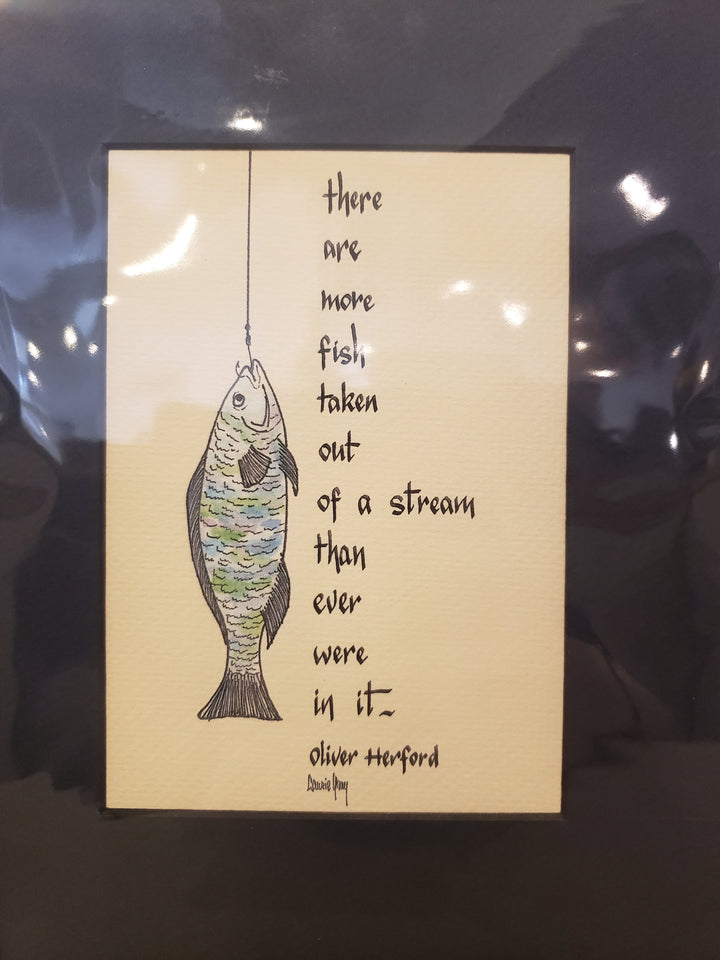 there
are
more
fish
taken
out
of a stream
than
ever
were
in it~
Oliver Herford